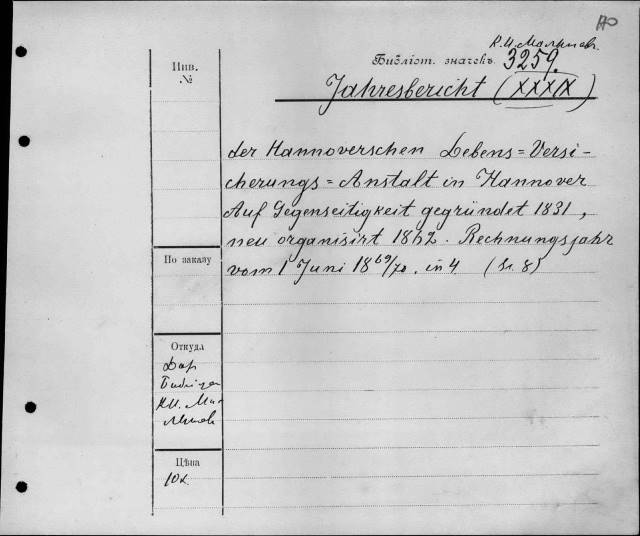 Инв.
№
Библіот. значекъ 3259.
Jahresbericht (XXXIX)
der Hannoverschen Lebens=Versi-
cherungs=Anstalt in Hannover
Auf Gegenseitigkeit gegründet 1831,
neu organisirt 1862. Rechnungsjahr
vom 1 Juni 1869/70. in 4
По заказу
Откуда
Дар
К.И.
Цѣна
10к.